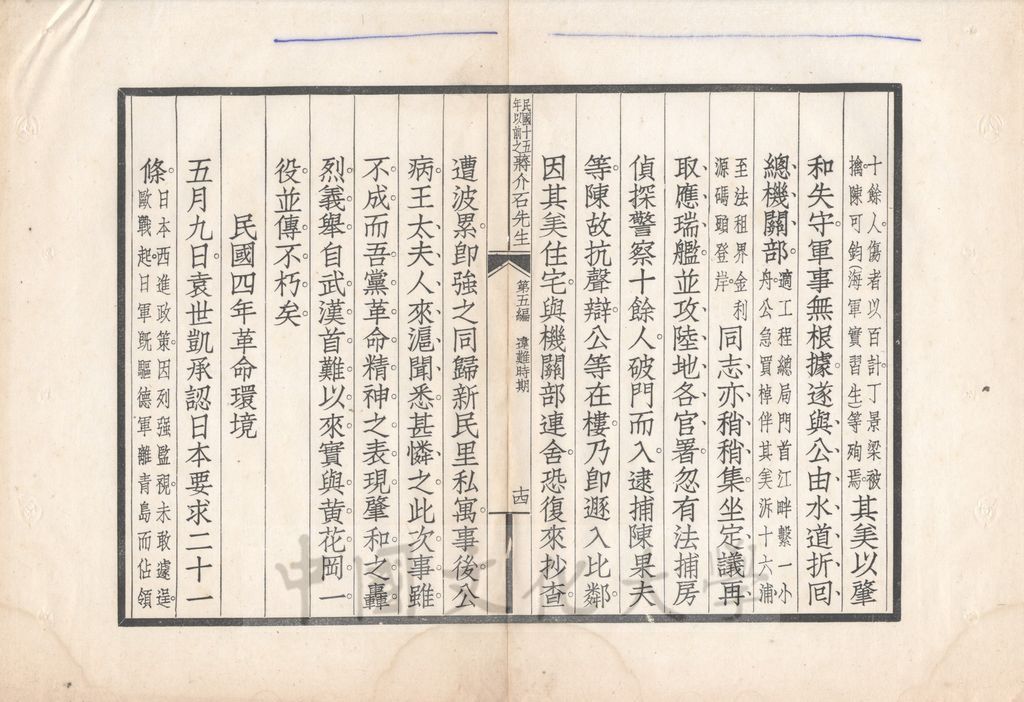 十餘人。傷者以百計、丁景梁被
擒、陳可鈞(海軍實習生)等殉焉。其美以肇
和失守、軍事無根據、遂與公由水道折回
總機關部、適工程總局門首江畔繫一小
舟、公急買棹伴其美泝十六浦、
至法租界金利
源碼頭登岸。同志亦稍稍集、坐定議再
取應瑞艦、並攻陸地各官署、忽有法捕房
偵探警察十餘人、破門而入、逮捕陳果夫
等。陳故抗聲辯、公等在樓、乃卽遯入比鄰。
因其美住宅與機關部連舍、恐復來抄查、
遭波累。卽強之同歸新民里私寓。事後公
病、王太夫人來滬、聞悉甚憐之。此次事雖
不成、而吾黨革命精神之表現、肇和之轟
烈義舉、自武漢首難以來、實與黃花岡一
役並傳不朽矣。
民國四年革命環境
五月九日。袁世凱承認日本要求二十一
條。日本西進政策、因列强監視、未敢遽逞。
歐戰起、日軍旣驅德軍離青島而佔領
民國十五年以前之蔣介石先生
第五編 違難時期
十四
中國文化大學